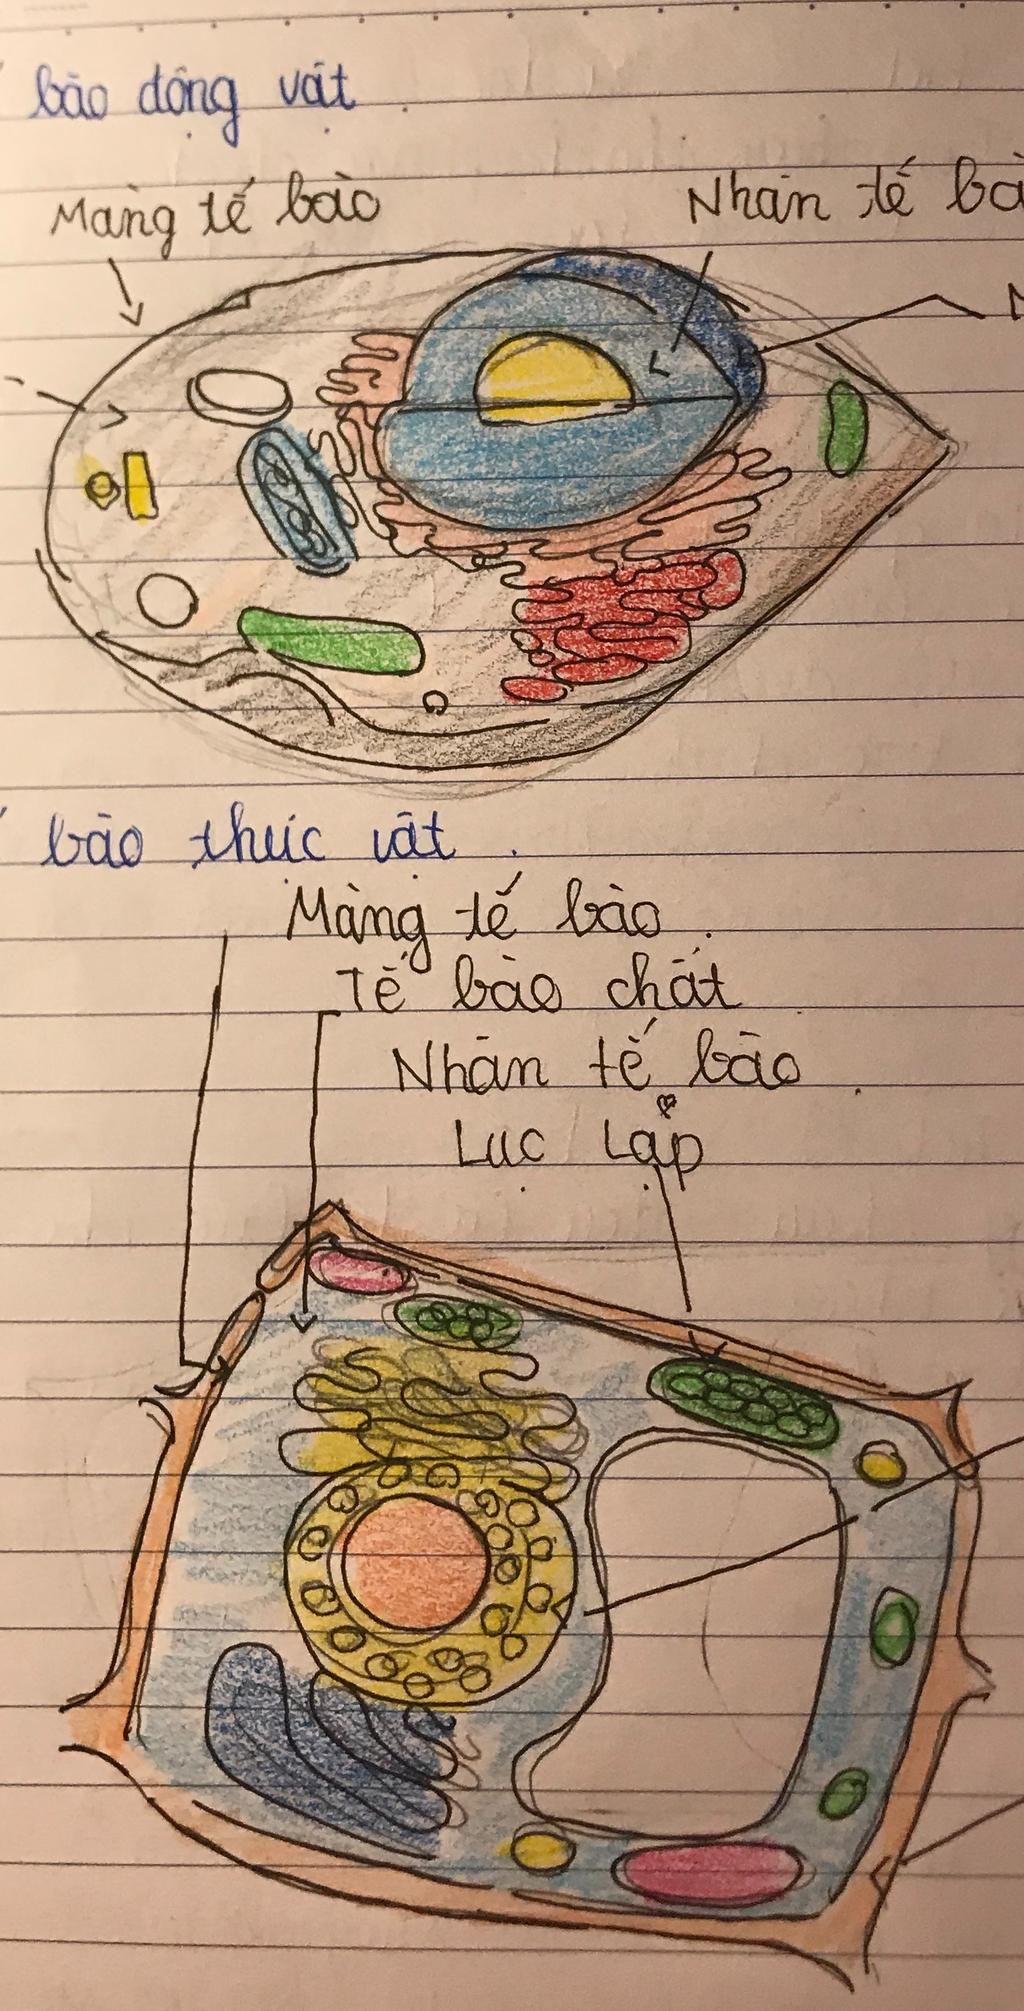 bào động vật
Màng tế bào
Nhân tế bà
bào thực vật.
Màng tế bào.
Tế bào chất
Nhân tế bào.
Lục Lạp